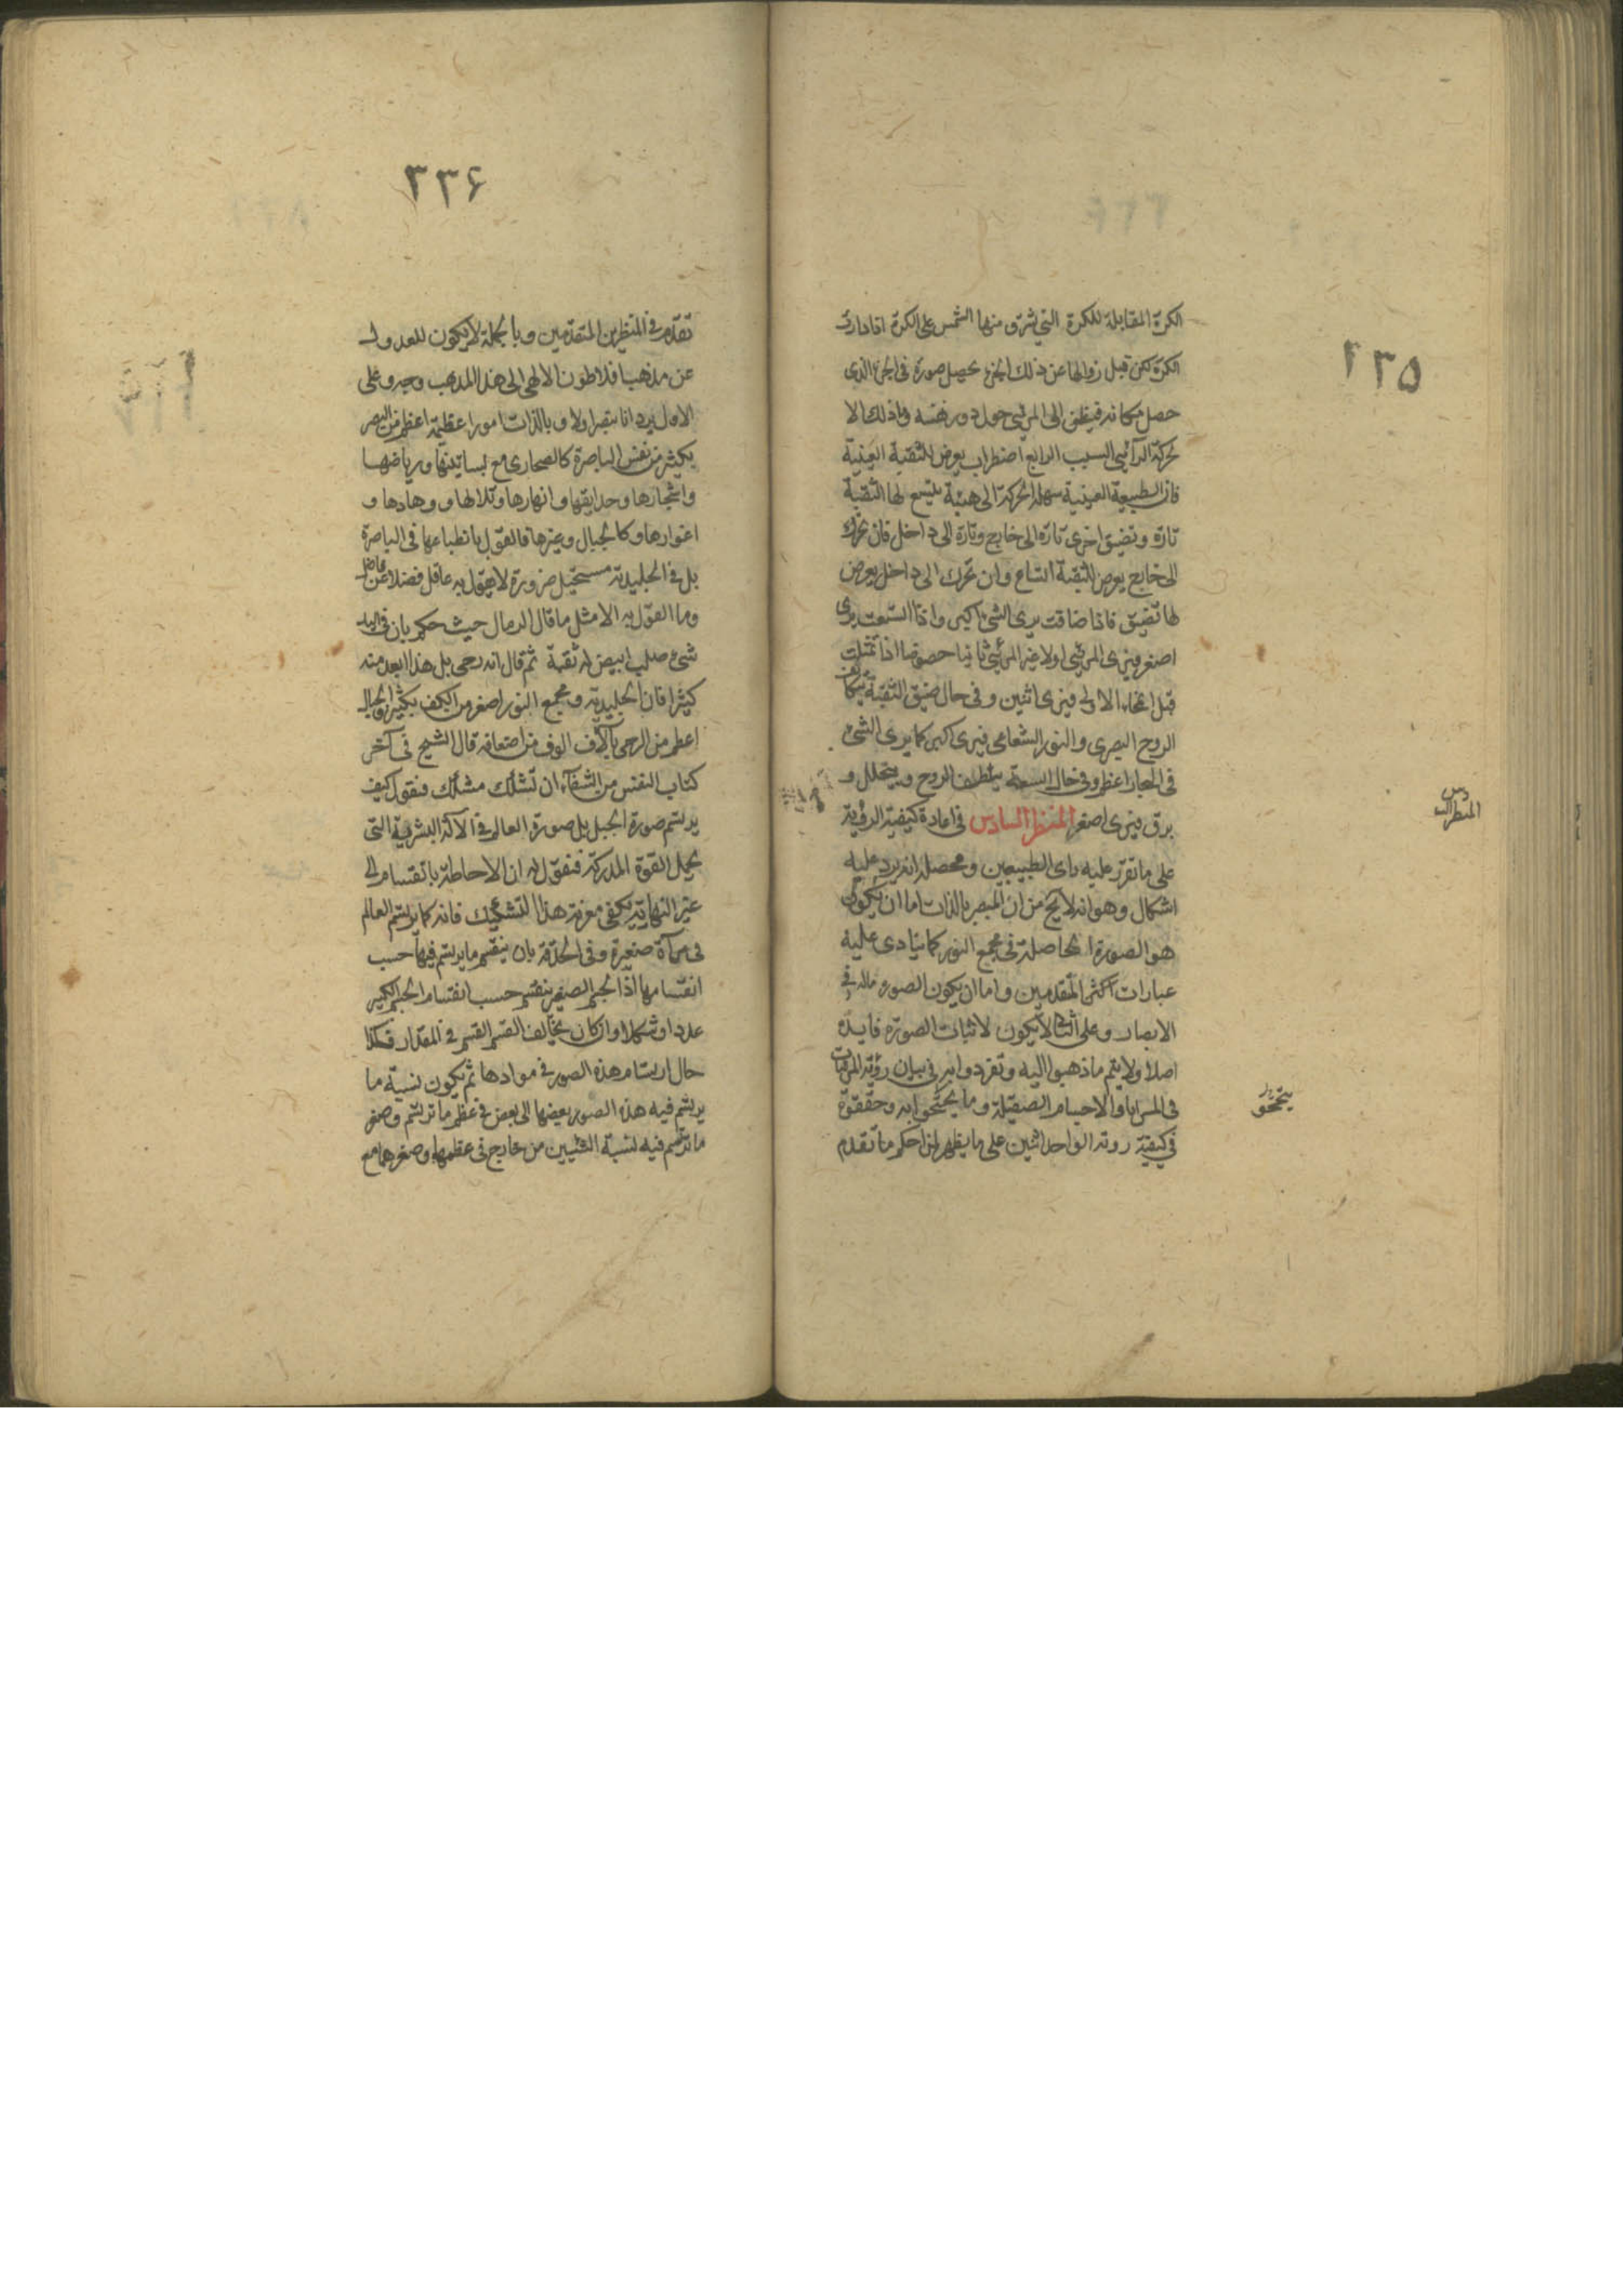 ٢٣٥
الكرة المقابلة للكرة التي تشرق منها الشمس على الكرة اذا دارت
الكرة لكن قبل زوالها عن ذلك الجزء يحصل صورة فى الجزء الذى
حصل مكانه فيظن ان المرئى حول دور نفسه وما ذلك الا
لحركة الرآئى السبب الرابع اضطراب يعرض للثقبة العينية
فان الطبيعة العينية سهلة الحركة الى هيئة يتسع لها الثقبة
تارة وتضيق اخرى تارة الى خارج وتارة الى داخل فان تحرك
الى خارج يعرض للثقبة اتساع وان تحرك الى داخل يعرض
لها تضيق فاذا ضاقت يرى الشئ اكبر واذا اتسعت يرى
اصغر فيرى المرئى اولا غير المرئى ثانيا خصوصا اذا تمثلت
قبل انمحاء الاولى فيرى اثنين وفى حال ضيق الثقبة يتكاثف
الروح البصرى والنور الشعاعى فيرى اكبر كما يرى الشئ
فى البخار اعظم وفى حال السعة يتلطف الروح ويتخلل و
يرق فيرى اصغر المنظر السادس فى اعادة كيفية الرؤية
المنظر السادس
على ما تقرر عليه راى الطبيعيين ومحصله انه يرد عليه
اشكال وهو انه لا يخ من ان المبصر بالذات اما ان يكون
هو الصورة الحاصلة فى مجمع النور كما ينادى عليه
عبارات اكثر المتقدمين واما ان يكون الصورة مالة فى
الابصار وعلى الثانى لا يكون لاثبات الصورة فايدة
اصلا ولا يتم ما ذهبوا اليه وتفردوا به فى بيان رؤية المرئيات
فى المرايا والاجسام الصقيلة وما يحتجوا به وحققوه
فى كيفية روية الواحد اثنين على ما يظهر لمن احكم ما تقدم
٢٣۶
تقدم فى المنظرين المتقدمين وبالجملة لا يكون للعدول
عن مذهب افلاطون الالهى الى هذا المذهب وجه وعلى
الاول يرد انا نبصر اولا وبالذات امورا عظيمة اعظم من البصر
بكثير من نفس الباصرة كالصحارى مع بساتينها ورياضها
واشجارها وحدايقها وانهارها وتلالها ووهادها و
اغوارها وكالجبال وغيرها فالقول بانطباعها فى الباصرة
بل فى الجليدية مستحيل ضرورة لا يقول به عاقل فضلا عن فاضل
وما القول به الا مثل ما قال الرمال حيث حكم بان فى اليد
شئ صلب ابيض له ثقبة ثم قال انه رحى بل هذا ابعد منه
كثيرا فان الجليدية ومجمع النور اصغر من الكف بكثير والجبال
اعظم من الرحى بآلاف الوف من اضعافه قال الشيخ فى آخر
كتاب النفس من الشفآء ان تشكك مشكك فنقول كيف
يرتسم صورة الجبل بل صورة العالم فى الآلة البشرية التى
يحمل القوة المدركة فنقول له ان الاحاطة بانقسام الى
غير النهاية يكفى مؤنة هذا التشكيك فانه كما يرتسم العالم
فى مرآة صغيرة وفى الحدقة بان ينقسم ما يرتسم فيها حسب
انقسامها اذ الجسم الصغير ينقسم حسب انقسام الجسم الكبير
عددا وشكلا وان كان يخالف القسم القسم فى المقدار فكذا
حال ارتسام هذه الصور فى موادها ثم يكون نسبة ما
يرتسم فيه هذه الصور بعضها الى بعض فى عظم ما ترتسم وصغر
ما ترتسم فيه نسبة الشيئين من خارج فى عظمها وصغرهما مع